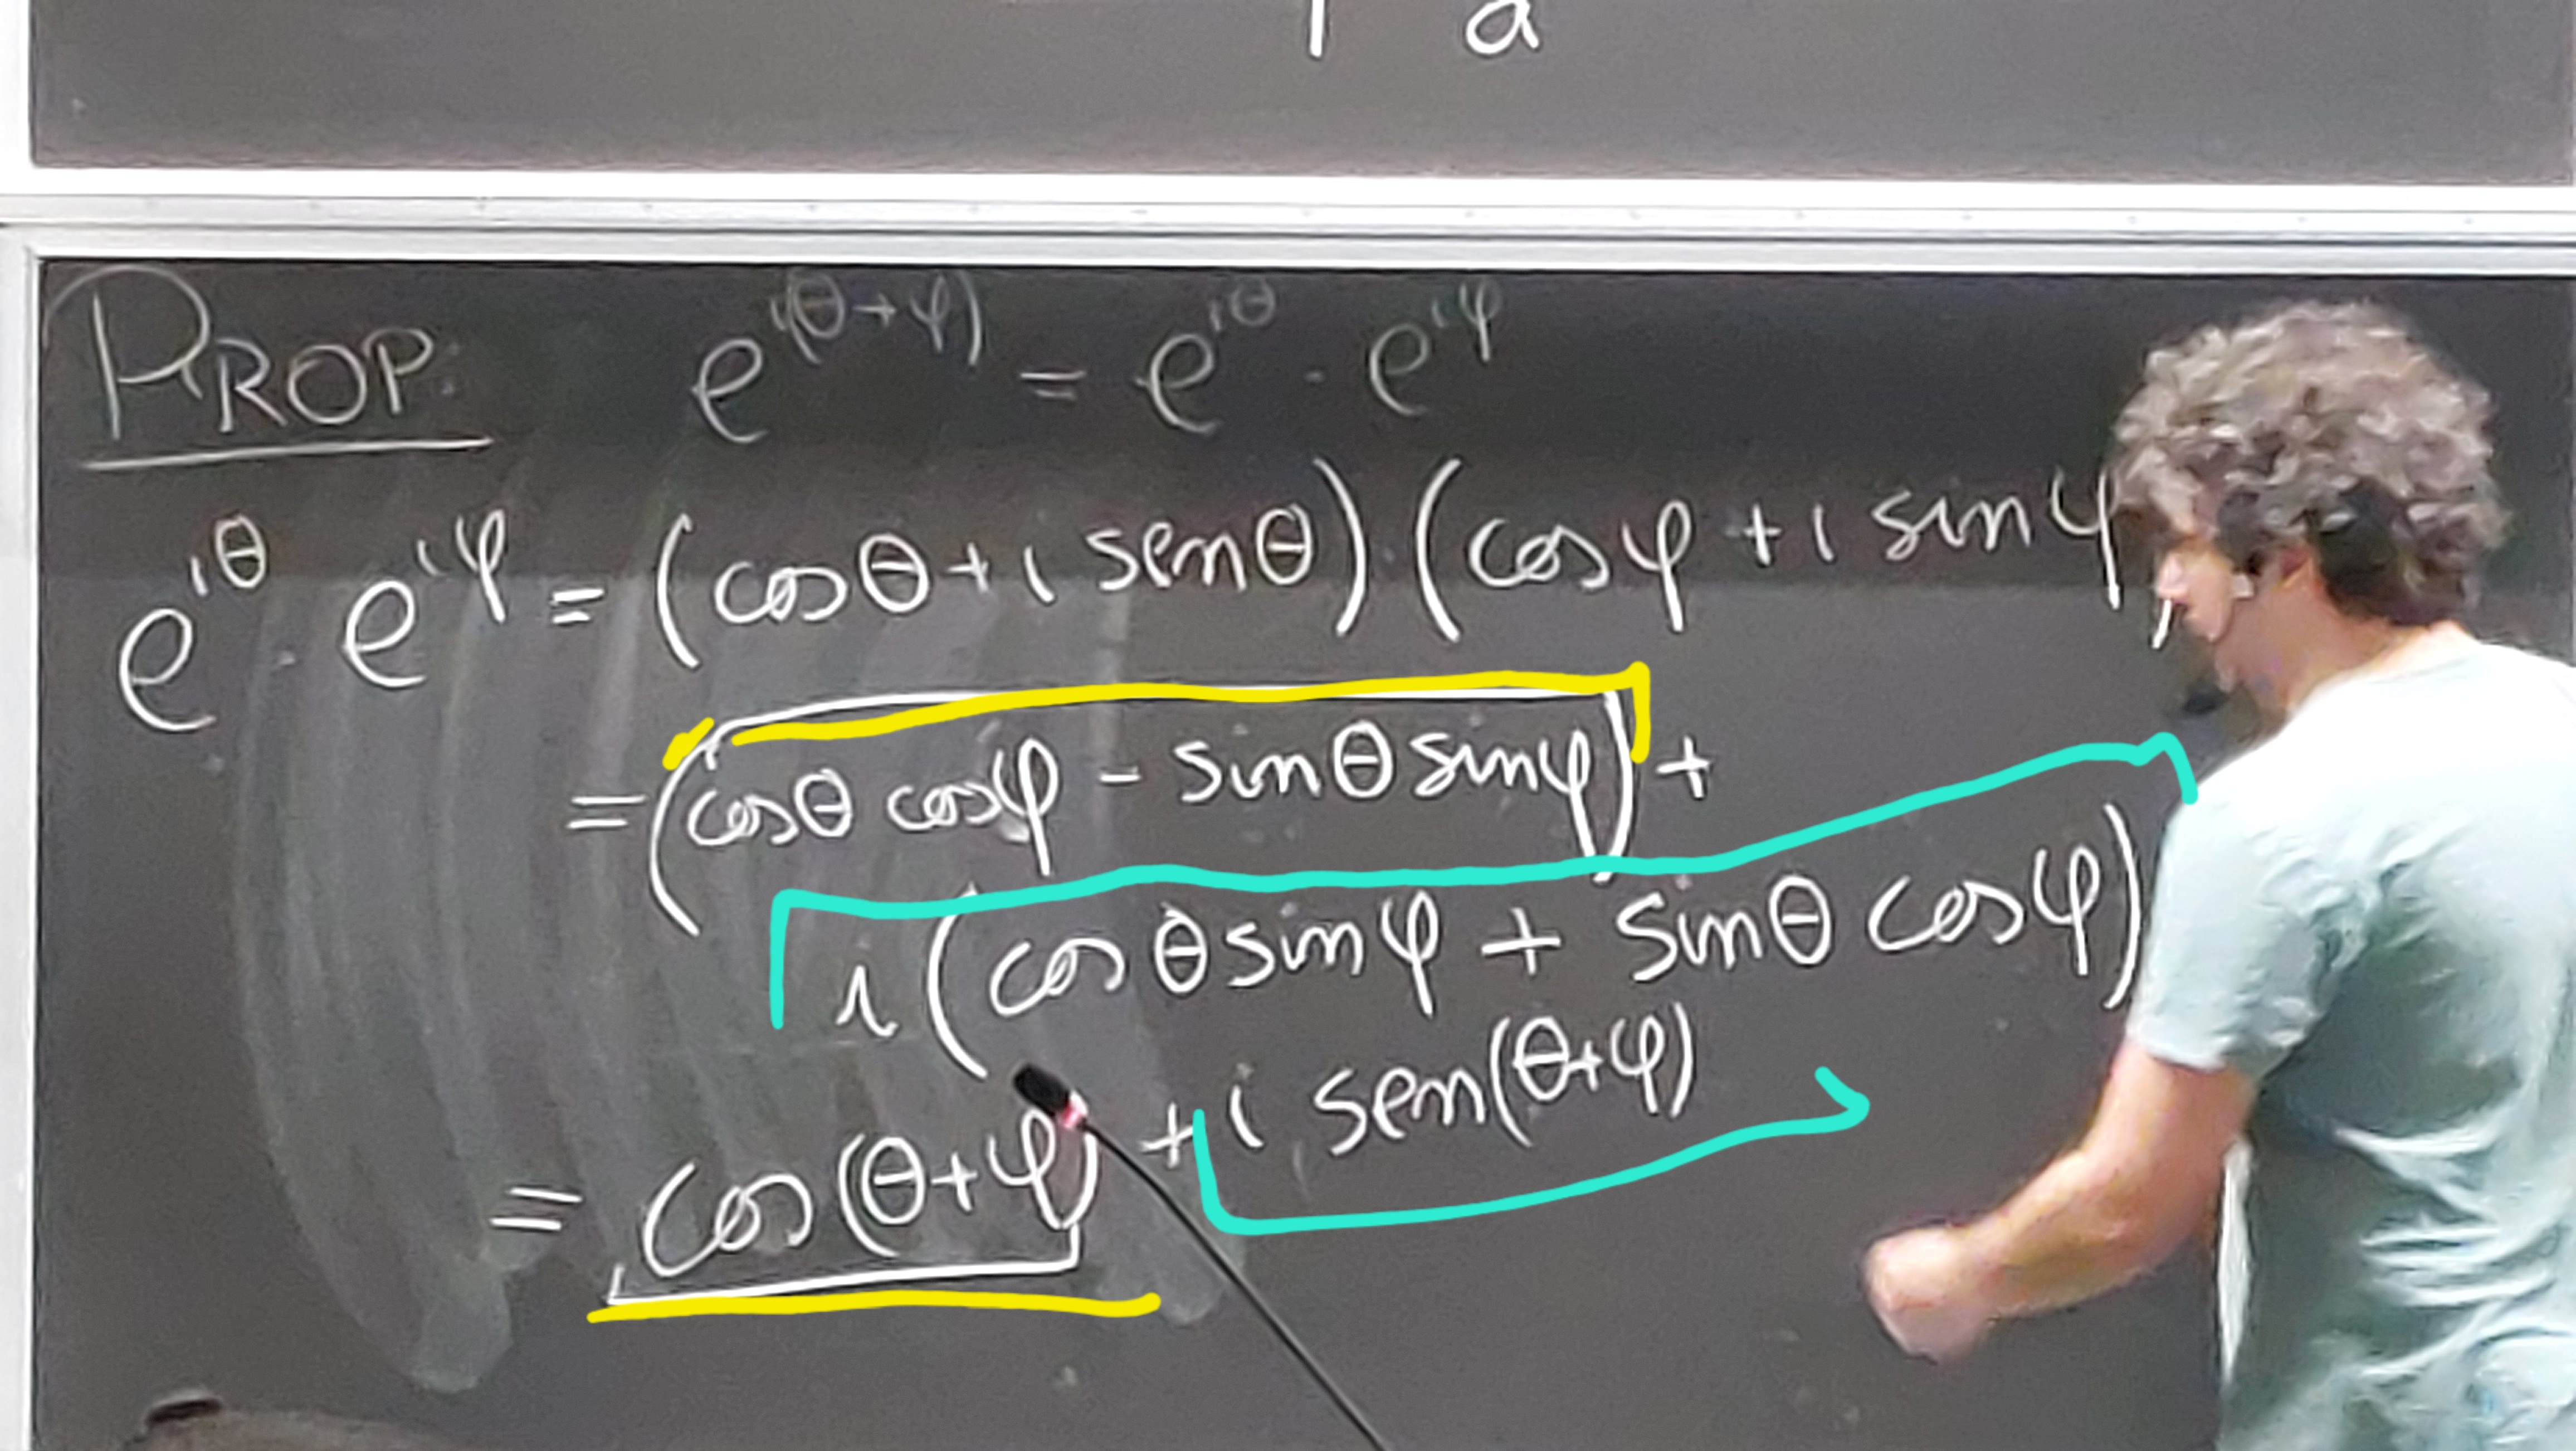 1 a
PROP. e^{i(θ+φ)} = e^{iθ} · e^{iφ}
e^{iθ} · e^{iφ} = (cosθ + i senθ) · (cosφ + i sinφ
= (cosθ cosφ - sinθ sinφ) +
i (cosθ sinφ + sinθ cosφ)
= cos(θ+φ) + i sen(θ+φ)